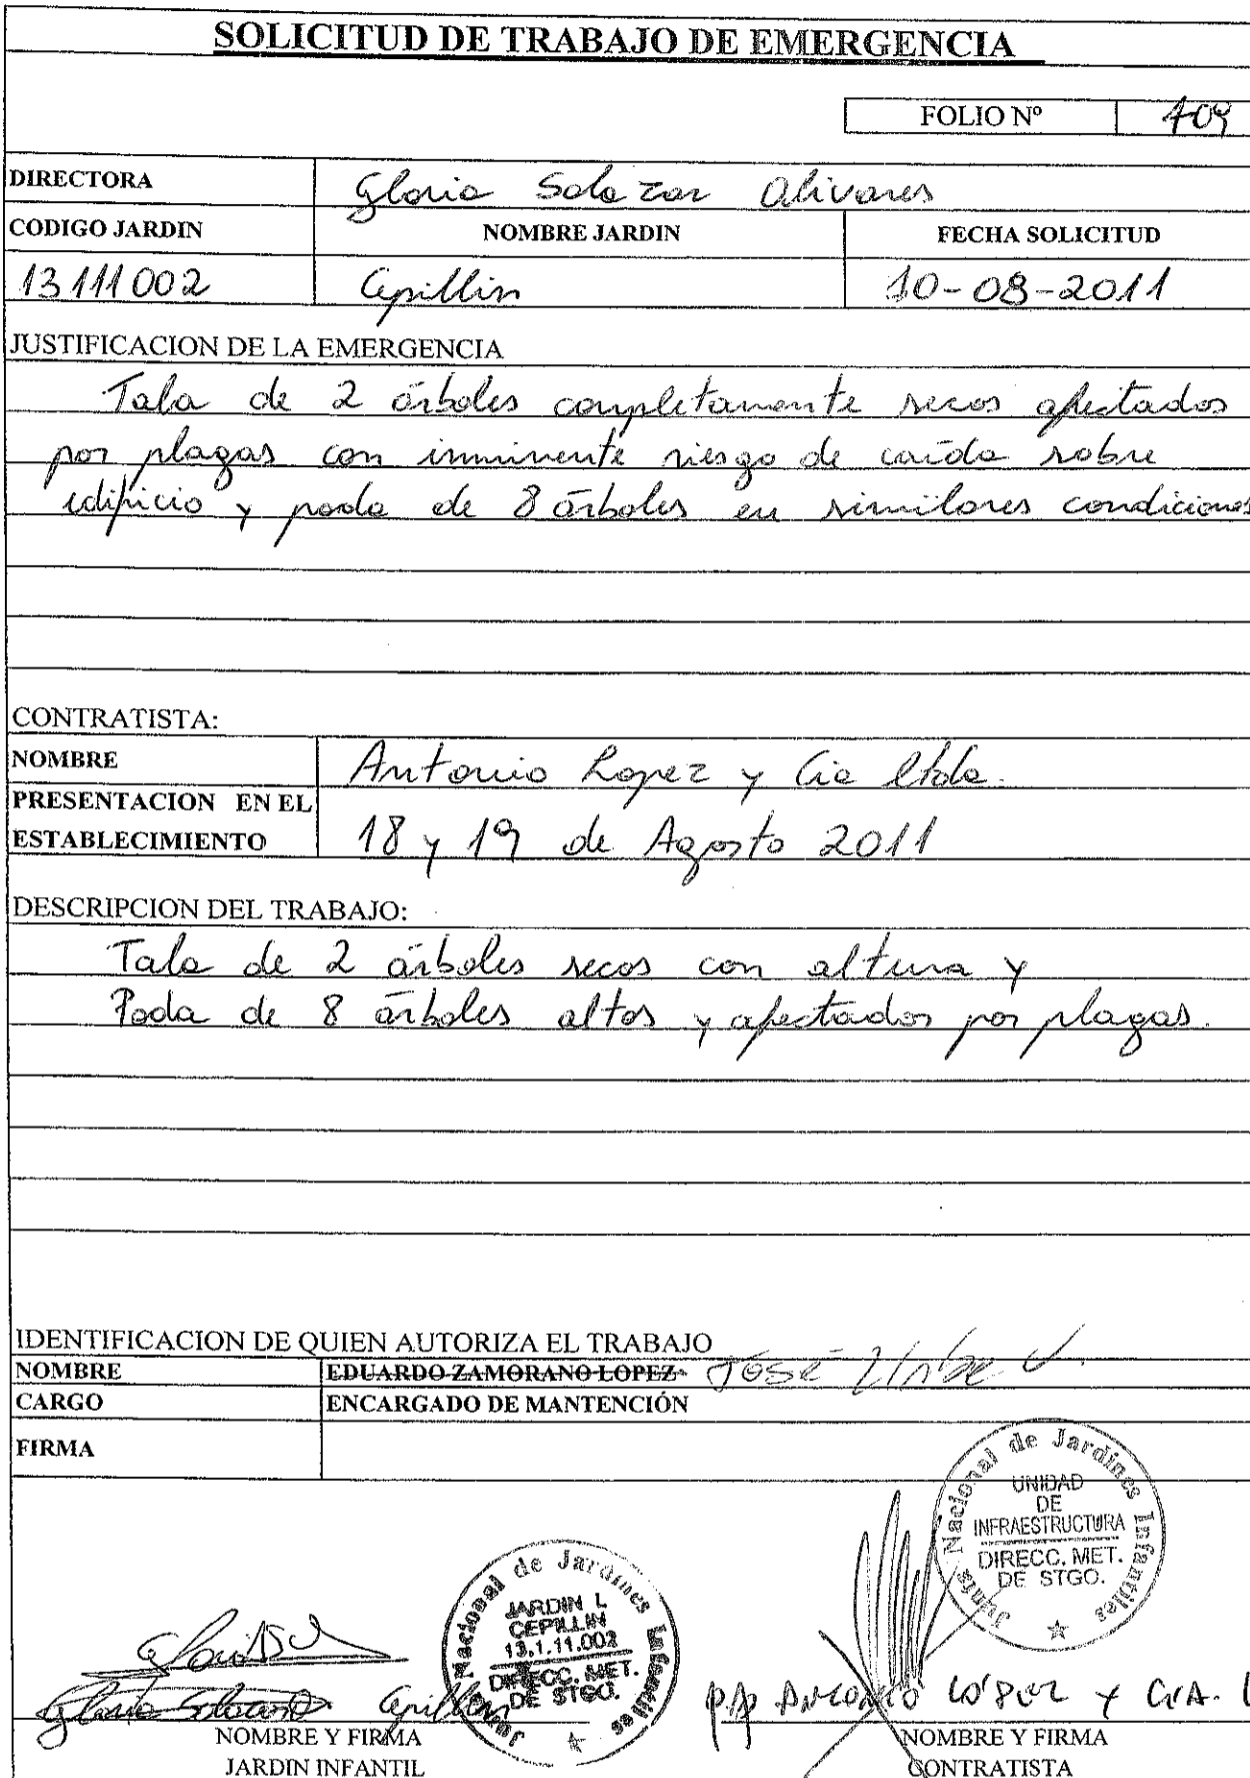 SOLICITUD DE TRABAJO DE EMERGENCIA
FOLIO Nº 409
DIRECTORA Gloria Salazar Olivares
CODIGO JARDIN NOMBRE JARDIN FECHA SOLICITUD
13111002 Cepillin 10-08-2011
JUSTIFICACION DE LA EMERGENCIA
Tala de 2 árboles completamente secos afectados
por plagas con inminente riesgo de caída sobre
edificio y poda de 8 árboles en similares condiciones
CONTRATISTA:
NOMBRE Antonio Lopez y Cia Ltda.
PRESENTACION EN EL
ESTABLECIMIENTO 18 y 19 de Agosto 2011
DESCRIPCION DEL TRABAJO:
Tala de 2 árboles secos con altura y
Poda de 8 árboles altos y afectados por plagas.
IDENTIFICACION DE QUIEN AUTORIZA EL TRABAJO
NOMBRE EDUARDO ZAMORANO LOPEZ José Uribe V.
CARGO ENCARGADO DE MANTENCIÓN
FIRMA
Junta Nacional de Jardines Infantiles
UNIDAD
DE
INFRAESTRUCTURA
DIRECC. MET.
DE STGO.
Junta Nacional de Jardines Infantiles
JARDIN I.
CEPILLIN
13.1.11.002
DIRECC. MET.
DE STGO.
Gloria Cepillin
p.p Antonio López y CIA. L
NOMBRE Y FIRMA NOMBRE Y FIRMA
JARDIN INFANTIL CONTRATISTA